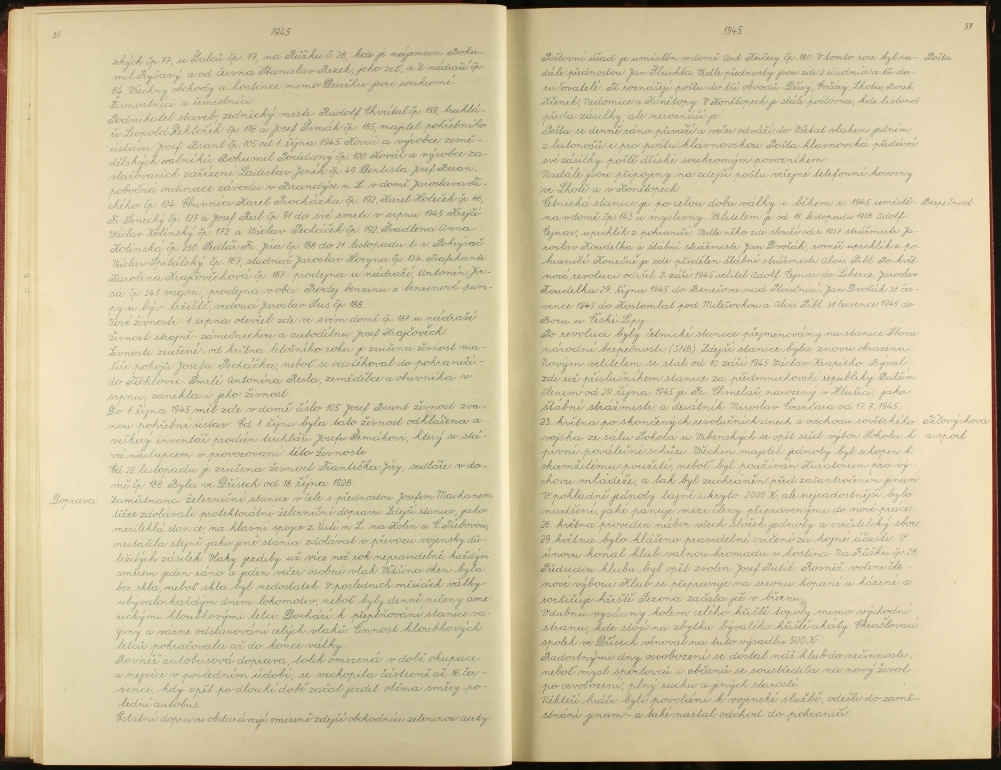 56
1945
ských čp 77, u Šulců čp. 17, na Růžku č. 28, kde je nájemcem Bohu-
mil Ryšavý a od června Stanislav Rezek, jeho zeť, a U nádraží čp.
84. Všechny obchody a hostence mimo Družku jsou soukromé.
Živnostníci a řemeslníci.
Podnikatel staveb, zednický mistr Rudolf Chvátal čp 159, truhlá-
ři Leopold Řehtoček čp. 116 a Josef Šimák čp. 185, majitel pohřebního
ústavu Josef Brant čp. 105 od 1. října 1945. Kovář a výrobce země-
dělských Bohumil Poddaný čp. 100. Kovář a výrobce za-
vlažovacích zařízení Ladislav Joník čp. 49. Dentista Josef
pobočná ordinace závodu v Brandýse n. L. v domě Jaroslava
čp. 124. Obuvníci Karel Procházka čp. 192, Karel Holeček čp. 46,
Fr. Penecký čp. 127 a Josef Resl čp. 91 do své smrti v srpnu 1945. Krejčí
Václav Kolínský čp. 172 a Václav Pecháček čp. 192. Švadlena Anna
Kolínská čp. 230. Sedlář Fr. Jíra čp. 186 do 21. listopadu t. r. Pokrývač
Václav Špitálský čp. 167, studnař Jaroslav Horyna čp. 134. Trafikanti
Karolina Krajčověchová čp. 187 - prodejna u nádraží, Antonín
čp. 241 vagon, prodejna v obci. Prodej benzinu z benzinové pum-
py u býv. tržiště, vedoucí Jaroslav Šus čp. 188.
Nové živnosti: 1. srpna otevřel zde ve svém domě čp. 187 u nádraží
živnost strojně - zámečnickou a autodílnu Josef Krajčověch.
Živnosti zrušené: od května letošního roku je zrušena živnost ma-
líře pokojů Josefa Pecháčka, neboť se odstěhoval do pohraničí -
do Těchlovic. Smrtí Antonína Resla, zemědělce a obuvníka v
srpnu, zanikla i jeho živnost.
Do 1. října 1945 měl zde v domě číslo 105 Josef Brant živnost zva-
nou pohřební ústav. Od 1. října byla tato živnost odhlášena a
veškerý inventář prodán truhláři Josefu Šimákovi, který se stá-
vá nástupcem v provozování této živnosti.
Od 22. listopadu je zrušena živnost Františka Jíry, sedláře v do-
mě čp. 186. Byla ve Dřísech od 18. října 1928.
Doprava
Zaměstnanci železniční stanice v čele s přednostou Josefem Machanem
těžce zdolávali protektorátní železniční dopravu. Zdejší stanice, jako
mezilehlá stanice na hlavní spojce z Ústí n. L. na Kolín a Č. Třebovou,
nestačila stejně jako jiné stanice zdolávat v převozu vojensky dů-
ležitých zásilek. Vlaky jezdily už více než rok nepravidelně, každým
směrem jeden ráno a jeden večer osobní vlak. Většina oken byla
bez skla, neboť skla byl nedostatek. V posledních měsících války
ubývalo každým dnem lokomotiv, neboť byly denně ničeny ame-
rickými hloubkovými letci. Dochází k přeplňování stanice va-
gony a vůbec odstavování celých vlaků. Činnost hloubkových
letců pokračovala až do konce války.
Rovněž autobusová doprava, tolik omezená v době okupace
a nejvíce v posledním údobí, se vzchopila částečně až 16. čer-
vence, kdy opět po dlouhé době začal jezdit oběma směry po-
lední autobus.
Ostatní dopravu obstarávají omezeně zdejší obchodníci zeleninou auty.
1945
57
Pošta
Poštovní úřad je umístěn v domě Ant. Kučery čp. 180. V tomto roce byl na-
dále přednostou Jan Hlachta. Vedle přednosty jsou zde 2 úředníci a tři do-
ručovatelé. Ti roznášejí poštu do tří obvodů: Dřísy, Ovčáry, Lhota, Borek,
Křenek, Nedomice a Konětopy. V Konětopech je stále poštovna, kde listonoš
předá zásilky, ale neroznáší je.
Pošta se denně ráno přiváží a večer odváží do Všetat vlakem jedním
z listonošů i pro poštu hlavnovskou. Pošta hlavnovská předává
své zásilky poště dřiské soukromým povozníkem.
Nadále jsou připojeny na zdejší poštu veřejné telefonní hovorny
ve Lhotě a v Konětopech.
Bezpečnost
Četnická stanice je po celou dobu války i během r. 1945 umístě-
na v domě čp. 143 u myslivny. Velitelem je od 15. listopadu 1938 Adolf
Cejnar, uprchlík z pohraničí. Vedle něho zde slouží od r. 1937 strážmistr Ja-
roslav Houdelka a štábní strážmistr Jan Dvořák, rovněž uprchlík z po-
hraničí. Konečně je zde přidělen štábní strážmistr Alois Pábl. Po květ-
nové revoluci odešel 3. září 1945 velitel Adolf Cejnar do Liberce, Jaroslav
Houdelka 29. října 1945 do Benešova nad Ploučnicí, Jan Dvořák 31. čer-
vence 1945 do Kostomlat pod Milešovkou a Alois Pábl 31. července 1945 do
Boru u České Lípy.
Po revoluci byly četnické stanice přejmenovány na stanice Sboru
národní bezpečnosti (SNB). Zdejší stanice byla znovu obsazena.
Novým velitelem se stal od 10. září 1945 Václav Krupička. Býval
zde již příslušníkem stanice za předmnichovské republiky. Dalším
členem od 29. října 1945 je Fr. Chmelař, narozený v Hlušici, jako
štábní strážmistr, a desátník Miroslav Svančara od 17. 7. 1945.
Tělovýchova
a sport
23. května po skončených revolučních dnech a odchodu sovětského
vojska ze sálu Sokola u Urbanských se opět sešel výbor Sokola k
první poválečné schůzi. Všechen majetek jednoty byl schopen k
okamžitému použití, neboť byl používán Kuratoriem pro vý-
chovu mládeže, a tak byl zachráněn před zašantročením jinam.
V pokladně jednoty tajně ukryto 2000 K, ale nejradostnější bylo
nadšení, jaké panuje mezi členy, připravenými do nové práce.
26. května proveden nábor všech složek jednoty a cvičitelský sbor
29. května bylo hlášeno pravidelné cvičení za hojné účasti. V
únoru konal klub valnou hromadu v hostinci Na Růžku čp. 28.
Předsedou klubu byl opět zvolen Josef Šulík. Rovněž voleni čle-
nové výboru. Klub se připravuje na sezonu kopané a házené a
rozšiřuje hřiště. Sezona začala již v březnu.
V dubnu vysázeny kolem celého hřiště topoly mimo východní
stranu, kde stojí na zbytku bývalého hřiště akáty. Okrašlovací
spolek ve Dřísech věnoval na tuto výsadbu 500 K.
Radostnými dny osvobození se dostal náš klub do nečinnosti,
neboť mysl sportovců i občanů se soustředila na nový život
po osvobození, plný ruchu a jiných starostí.
Někteří hráči byli povoláni k vojenské službě, odešli do zamě-
stnání jinam - a také nastal odchod do pohraničí.